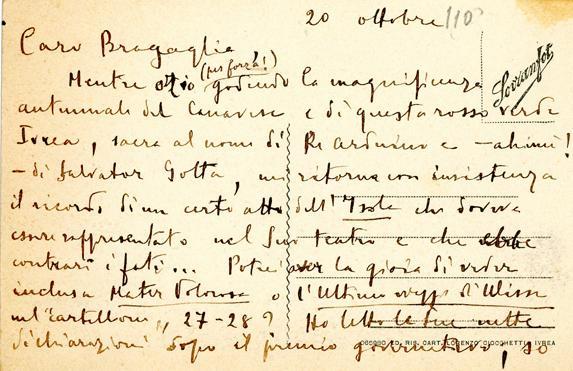 20 ottobre
Caro Bragaglia,
(per forza!)
Mentre ozio godendo la magnificenza
autunnale del Canavese e di questa rosso verde
Ivrea, sacra al nome di Re Arduino e - ahimè!
- di Salvator Gotta, mi ritorna con insistenza
il ricordo di un certo atto dell'Isola che doveva
essere rappresentato nel Suo teatro e che ebbe
contrari i fati... Potrei aver la gioia di veder
inclusa Mater Dolorosa o l'Ultimo viaggio di Ulisse
nel "cartellone" 27-28? Ho letto le Sue nette
dichiarazioni dopo il premio governativo, so
Lovanfot
ED. RIS. CART. LORENZO CIOCCHETTI - IVREA